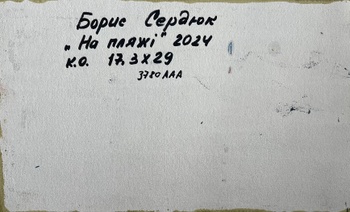 Борис Сердюк
„На пляжі" 2024
к.о. 17.3 х 29
3780 ААА